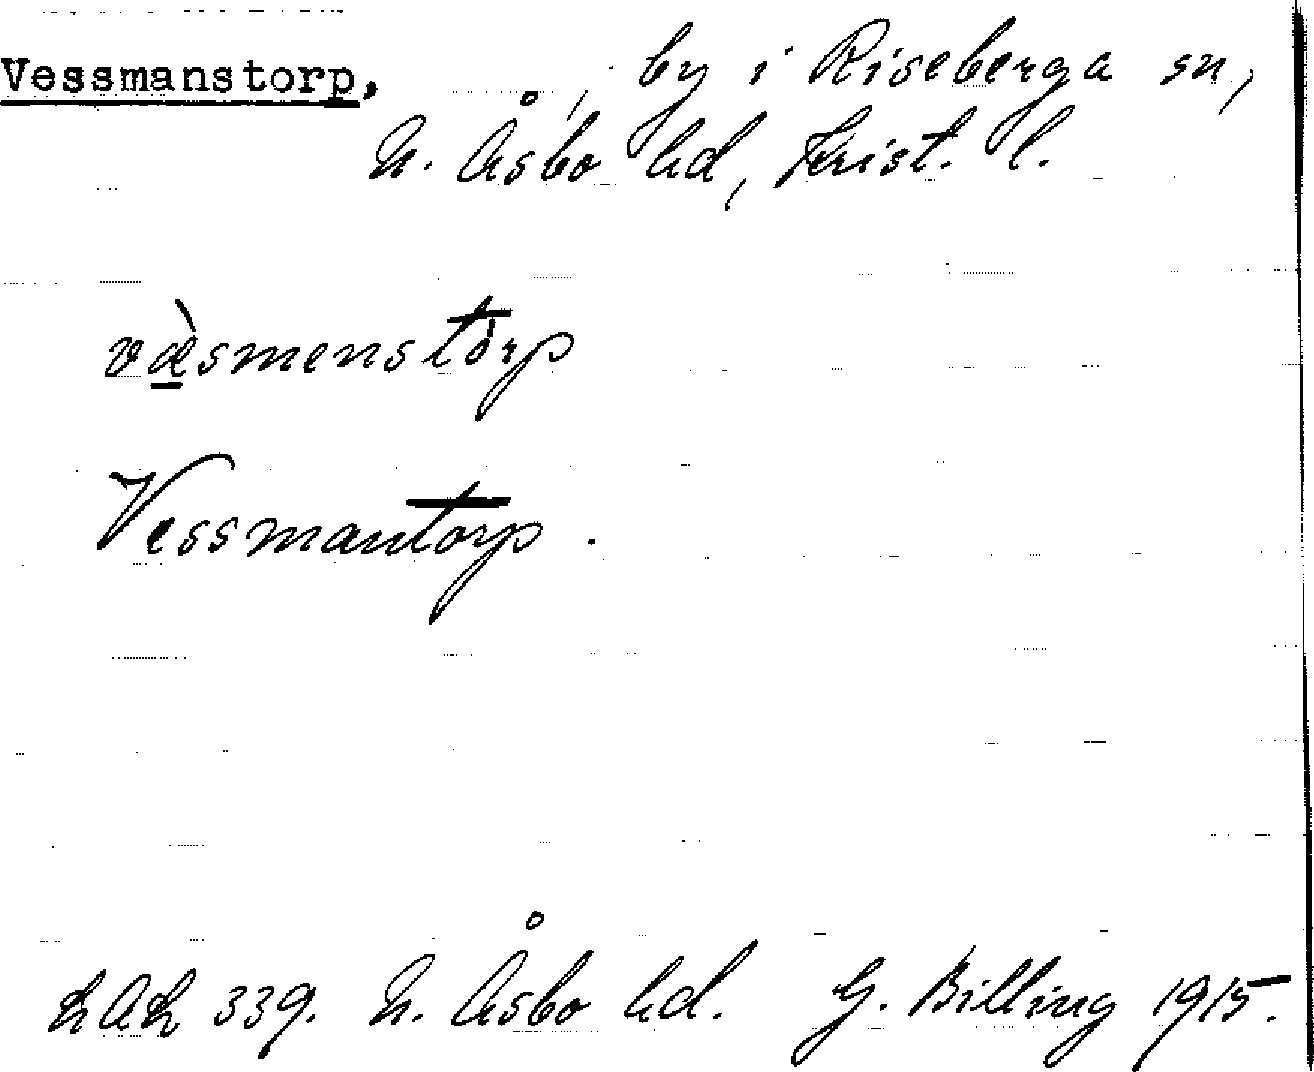 Vessmanstorp, by i Riseberga sn,
N. Åsbo hd, Krist. l.
væ̀smenstòrp
Vessmantorp.
LAL 339. N. Åsbo hd. G. Billing 1915.